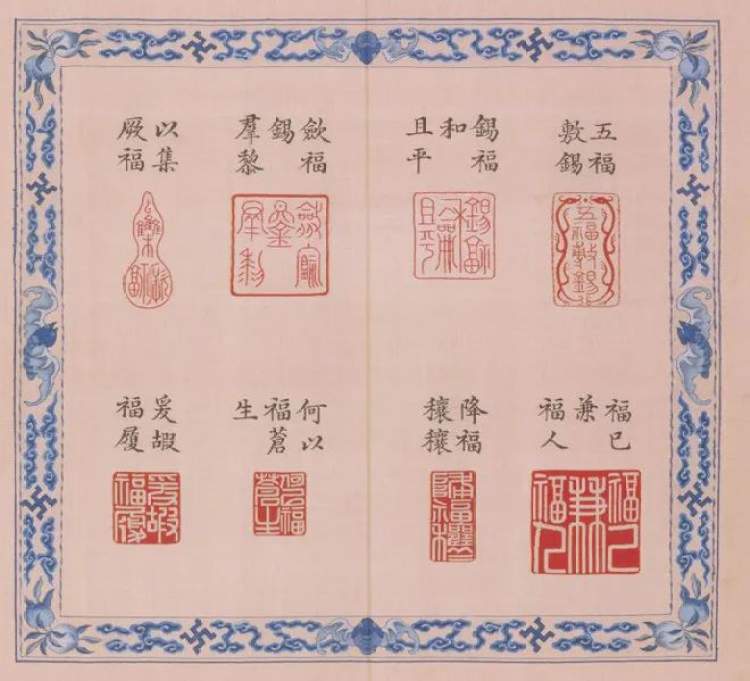 五福
敷錫
錫福
和
且平
歛福
錫
羣黎
以集
厥福
福已
兼
福人
降福
穰穰
何以
福蒼
生
爰嘏
福履